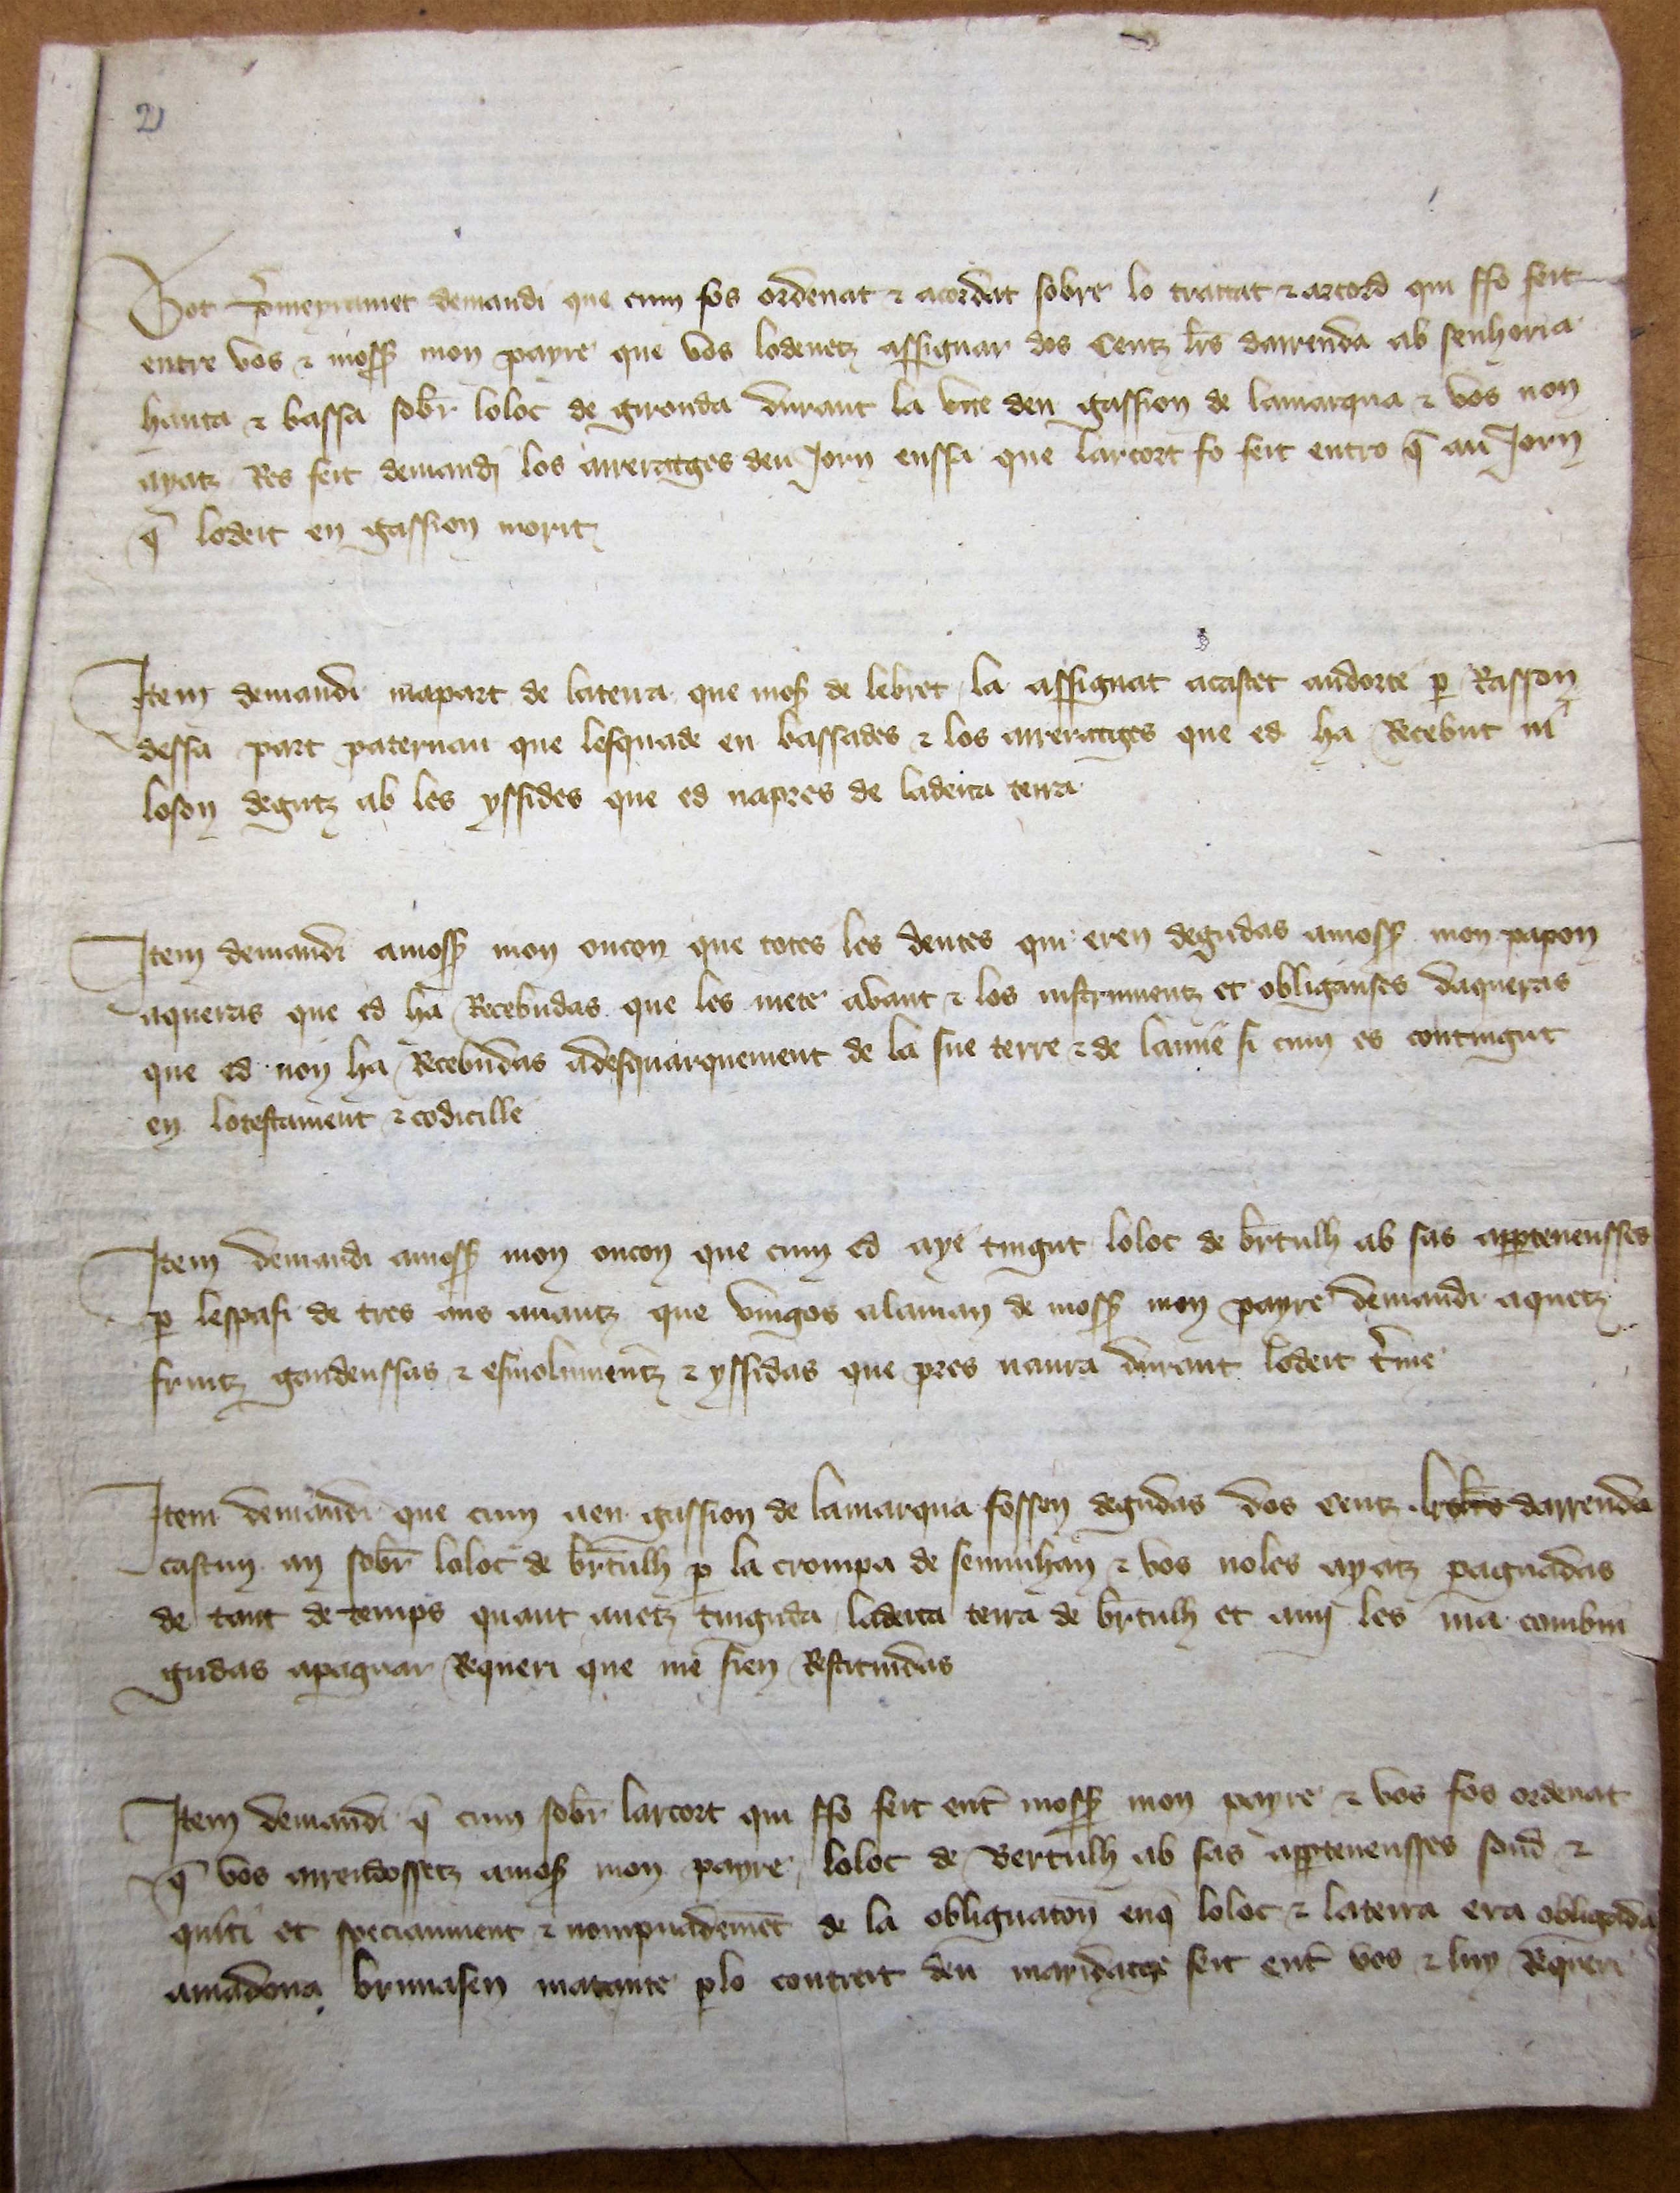 2
Tot p̄meyrament demandi que cum fos ordenat & acordat sobre lo trattat & accord qui ffo feit
entre vos & mosß mon payre que vos lodenetz assignar dos Centz lrs̄ darrenda ab senhoria
hauta & bassa sobr̄ loloc de gironda durant la vite den gassion de lamarqua & vos non
ayatz Res feit demandi los arreratges deu Jorn enssa que laccort fo feit entro q̄ au Jorn
q̄ lodeit en gassion morit
Item demandi mapart de laterra que mosß de lebret la assignat acastet audorte p Rasson
dessa part paternau que lesquade en bassades & los arreratges que ed ha Recebut
loson degutz ab les yssides que ed napres de ladeita terra
Item demandi amosß mon oncon que totes les deutes qui eren degudas amosß mon papon
aqueras que ed ha Recebudas que les mete abant & los instrumentz et obliganses daqueras
que ed non ha Recebudas adesquarquement de la sue terre & de lanme si cum es contingut
en lotestament & codicille
Item demandi amosß mon oncon que cum ed aye tingut loloc de br̄tulh ab sas appertenensses
p lespasi de tres ans auantz que vingos alaman de mosß mon payre demandi aquetz
fruutz gaudenssas & esmolumentz & yssidas que pres naura durant lodeit t̄me
Item demandi que cum aen gassion de lamarqua fossen degudas dos Centz darrenda
cascun an sobr̄ loloc de br̄tulh p la crompa de seminhan & vos noles ayatz paguadas
de tant de temps quant auetz tinguda ladeita terra de br̄tulh et amj les ma combin
gudas apaguar Requeri que me sien Restituidas
Item demandi q̄ cum sobr̄ laccort qui ffo feit ent̄ mosß mon payre & vos fos ordenat
q̄ vos arrendossetz amosß mon payre loloc de Bertulh ab sas appertenensses soud &
quiti et speciaument & nompnademēt de la obliguaton enq̄ loloc & laterra era obligada
amadona brunasen matante plo contreit deu maridatge feit ent̄ vos & luy Requeri